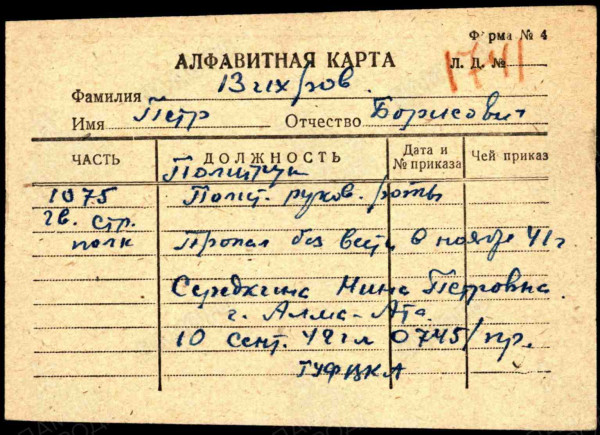 Форма № 4
АЛФАВИТНАЯ КАРТА Л. Д. № 1741
Фамилия Вихров
Имя Петр Отчество Борисович
ЧАСТЬ ДОЛЖНОСТЬ Дата и № приказа Чей приказ
Политрук
1075 Полит. руков. роты
гв. стр.
полк Пропал без вести в ноябре 41 г
Середкина Нина Петровна
г. Алма-Ата
10 сент. 42 г л 0745/пр.
ГУФКА